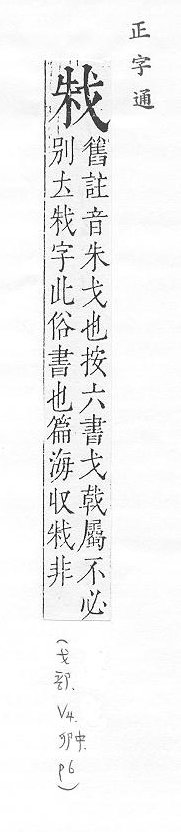 正字通
⿰朱戈
舊註音朱戈也按六書戈戟屬不必
别立⿰朱戈字此俗書也篇海収⿰朱戈非
(戈部、V4.卯中.p6)